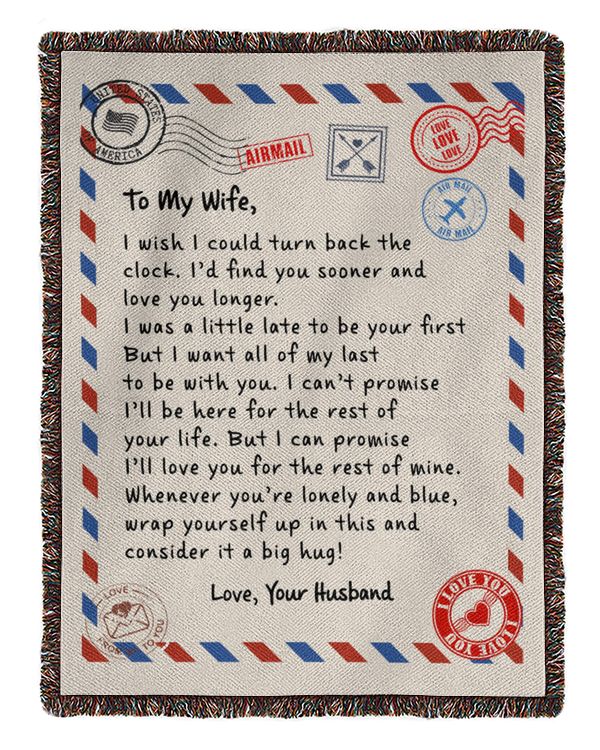 UNITED STATES
AMERICA
AIRMAIL
LOVE
LOVE
LOVE
AIR MAIL
AIR MAIL
To My Wife,
I wish I could turn back the
clock. I'd find you sooner and
love you longer.
I was a little late to be your first
But I want all of my last
to be with you. I can't promise
I'll be here for the rest of
your life. But I can promise
I'll love you for the rest of mine.
Whenever you're lonely and blue,
wrap yourself up in this and
consider it a big hug!
Love, Your Husband
LOVE
TO YOU
I LOVE YOU
I LOVE YOU